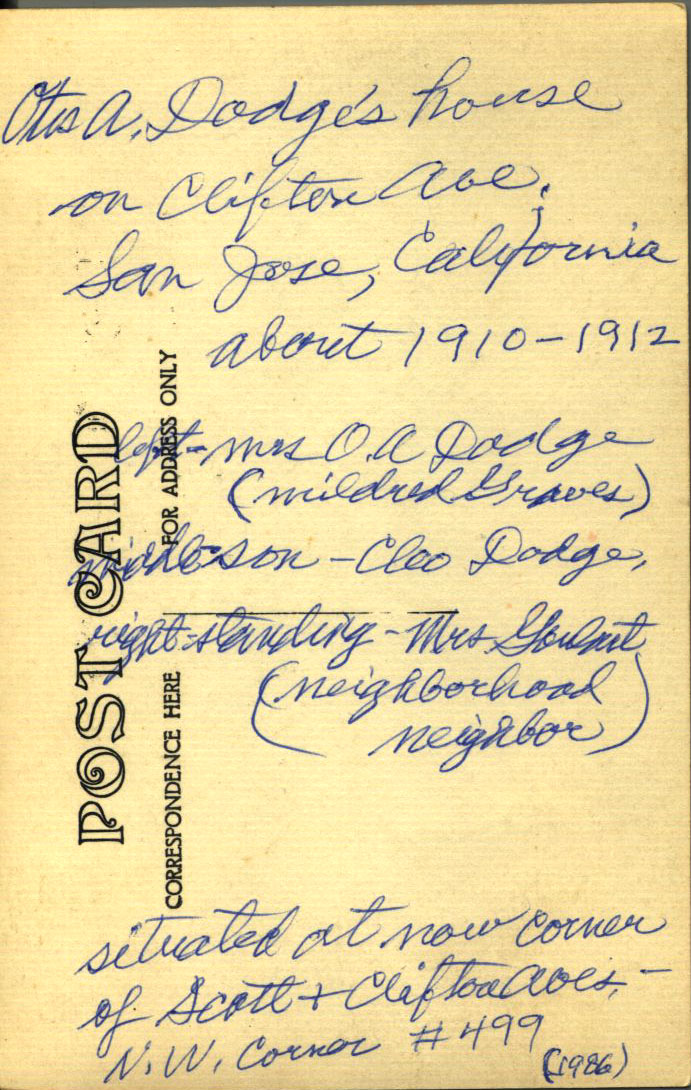 Otis A. Dodge's house
on Clifton Ave.
San Jose, California
about 1910-1912
left- Mrs O.A Dodge
(Mildred Graves)
middle-son - Cleo Dodge,
right-standing - Mrs
(neighborhood
neighbor)
situated at now corner
of Scott + Clifton Aves, -
N.W. Corner #499
(1986)
POST CARD
CORRESPONDENCE HERE
FOR ADDRESS ONLY